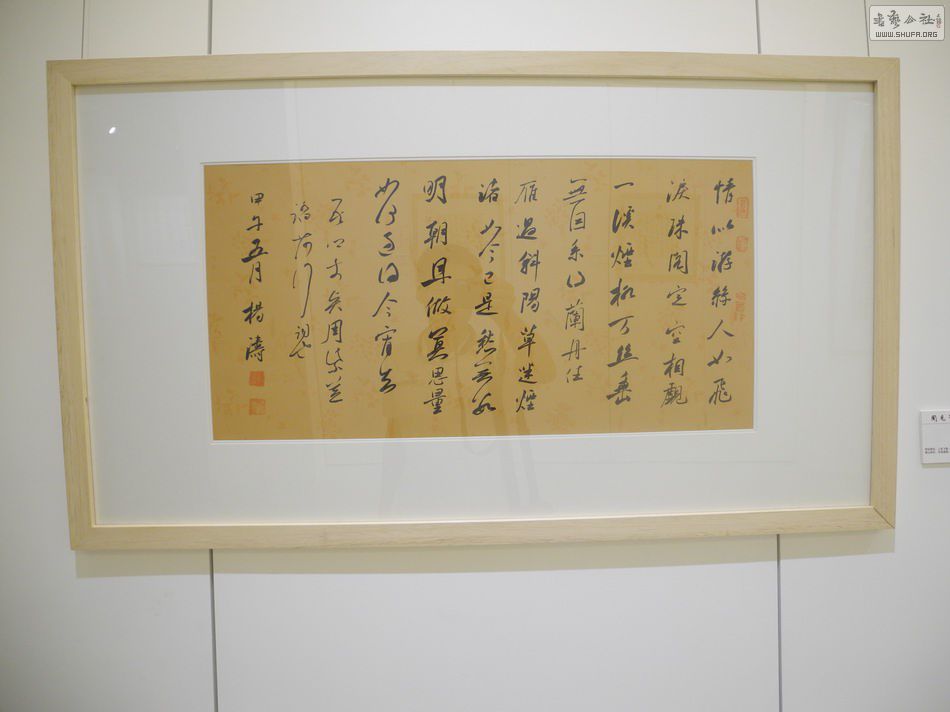 情似游絲人如飛
淚珠閣定空相覷
一溪煙柳万絲垂
無因系得蘭舟住
雁過斜陽草迷煙
渚如今已是愁無數
明朝且做莫思量
如何過得今宵去
周紫芝
踏莎行
甲午五月楊濤
書藝公社
WWW.SHUFA.ORG